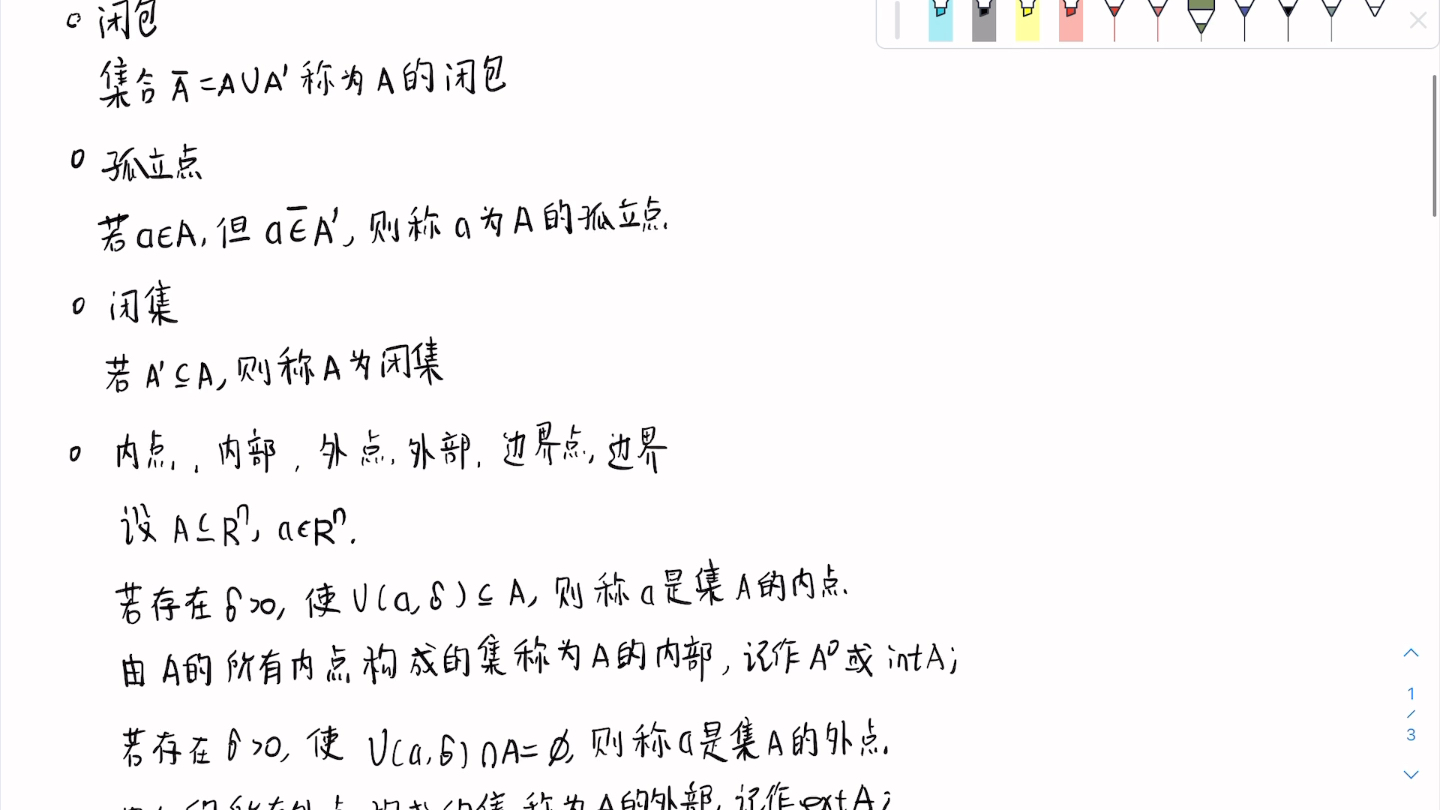 闭包
集合 Ā=A∪A' 称为A的闭包
孤立点
若a∈A,但a∈̅A',则称a为A的孤立点.
闭集
若A'⊆A,则称A为闭集
内点,内部,外点,外部,边界点,边界
设A⊆Rⁿ,a∈Rⁿ.
若存在δ>0,使U(a,δ)⊆A,则称a是集A的内点.
由A的所有内点构成的集称为A的内部,记作A⁰或intA;
若存在δ>0,使 U(a,δ)∩A=∅,则称a是集A的外点.
的所有外点构成的集称为A的外部,记作extA;
1
/
3